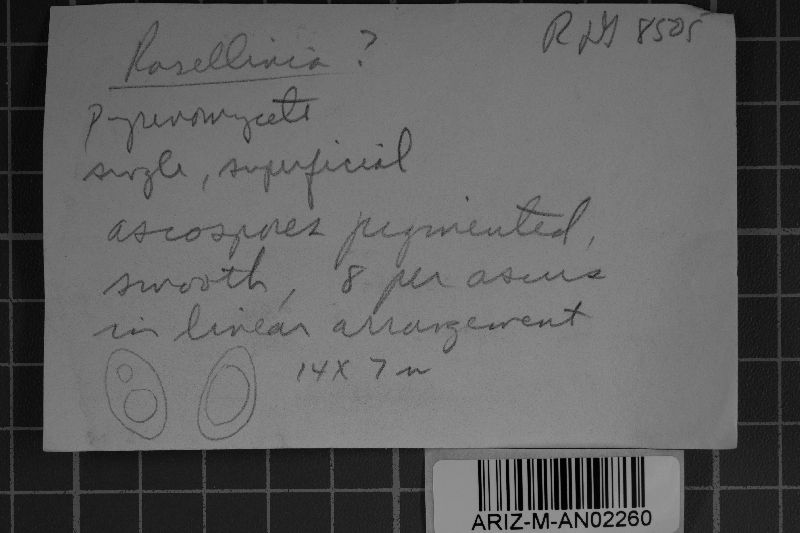 Rosellinia ?
RLG 8505
Pyrenomycete
single, superficial
ascospores pigmented,
smooth, 8 per ascus
in linear arrangement
14 X 7 u
ARIZ-M-AN02260